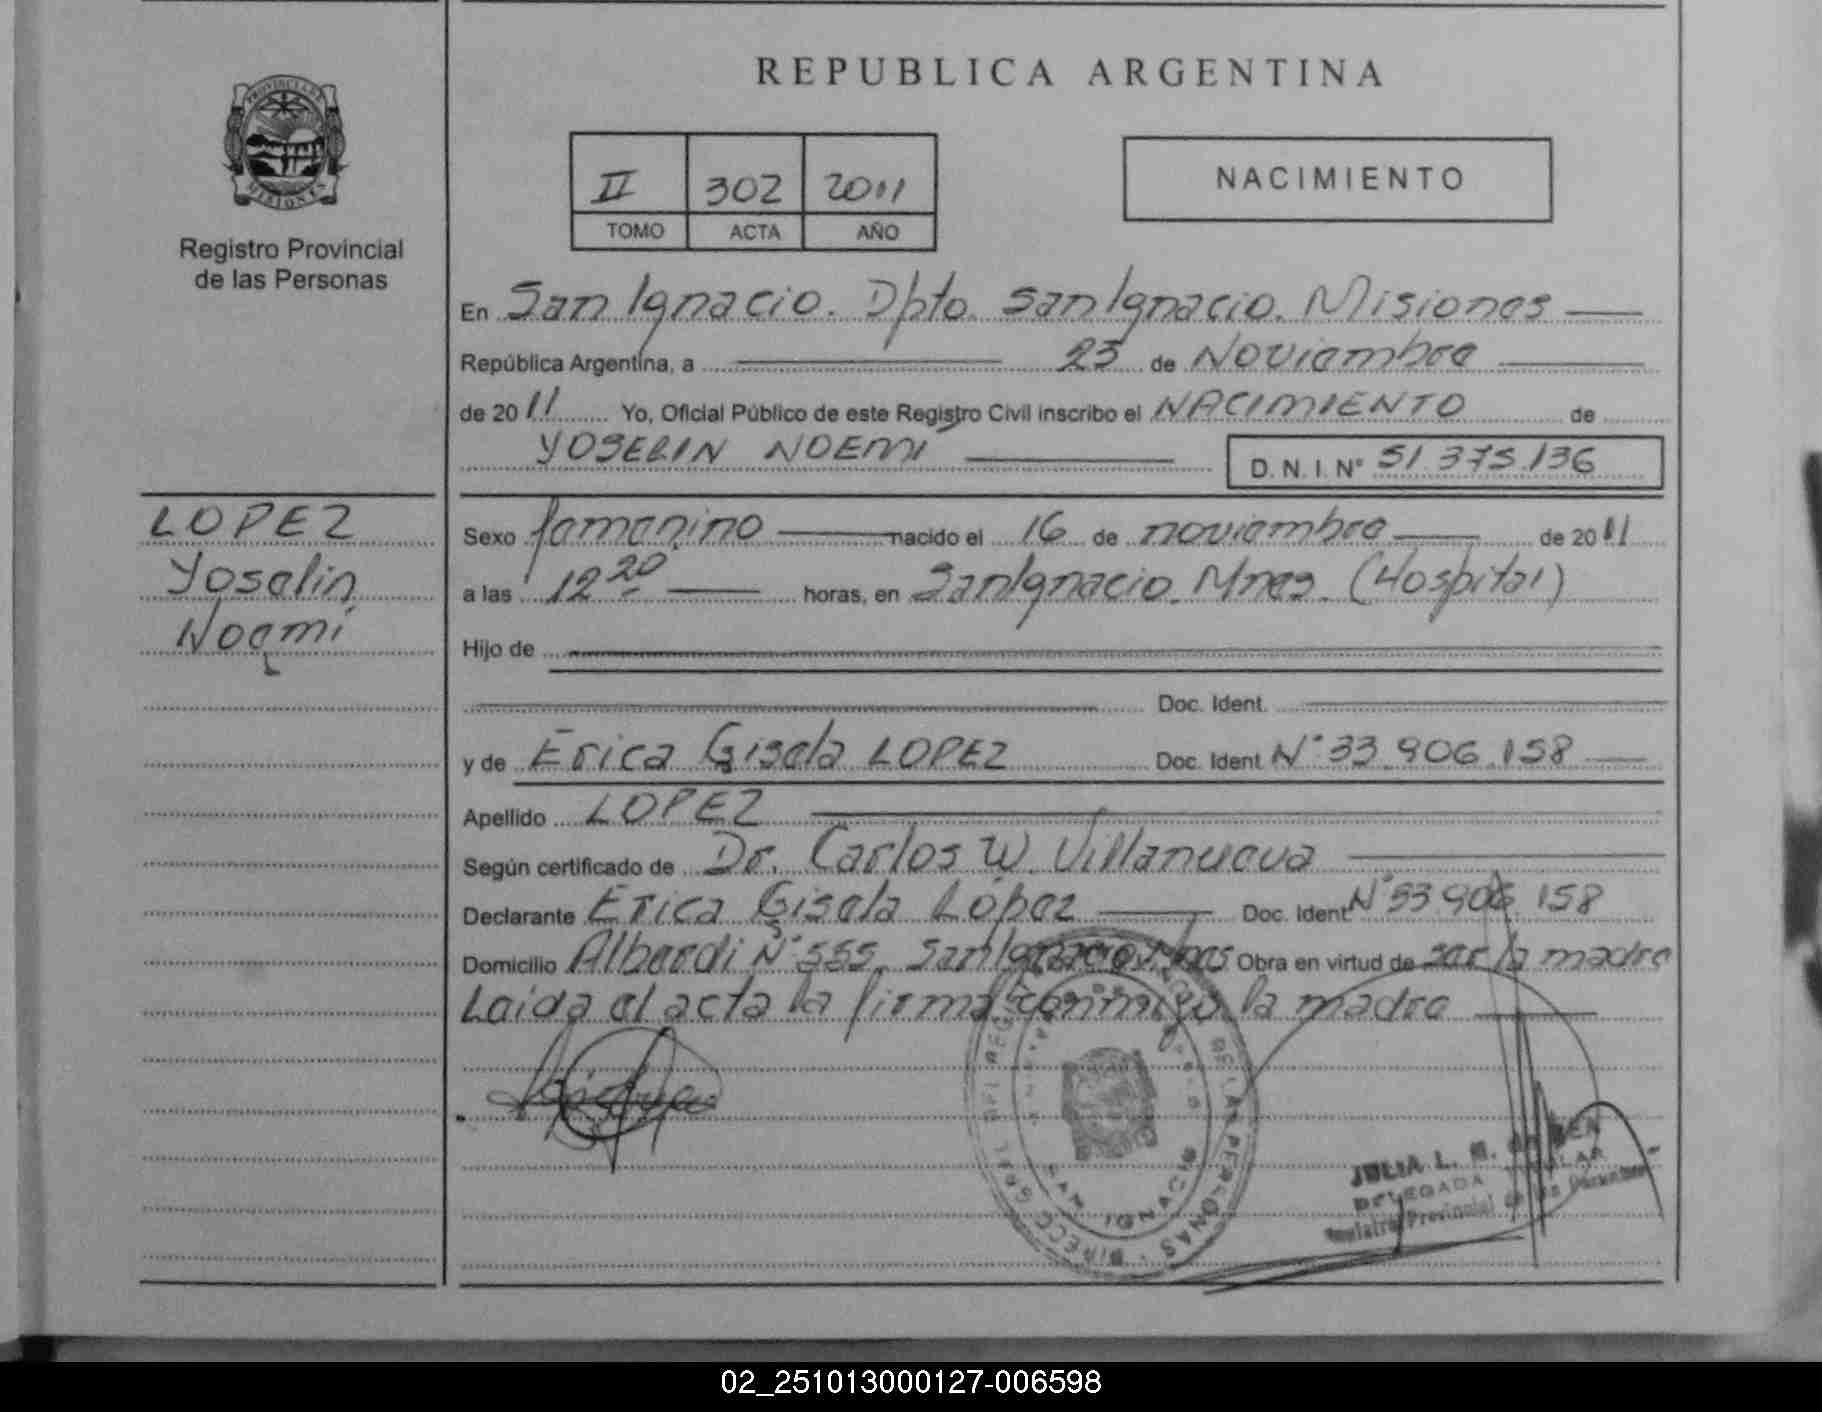 REPUBLICA ARGENTINA
PROVINCIA DE
MISIONES
Registro Provincial
de las Personas
II 302 2011
TOMO ACTA AÑO
NACIMIENTO
En San Ignacio. Dpto. San Ignacio. Misiones
República Argentina, a 23 de Noviembre
de 2011 Yo, Oficial Público de este Registro Civil inscribo el NACIMIENTO de
YOSELIN NOEMI D.N.I. Nº 51.375.136
LOPEZ
Yoselin
Noemi
Sexo femenino nacido el 16 de noviembre de 2011
a las 12 20 horas, en San Ignacio. Mnes. (Hospital)
Hijo de
Doc. Ident.
y de Erica Gisela LOPEZ Doc. Ident Nº 33.906.158
Apellido LOPEZ
Según certificado de Dr. Carlos W. Villanueva
Declarante Erica Gisela López Doc. Ident Nº 33.906.158
Domicilio Alberdi Nº 555. San Ignacio Mnes Obra en virtud de ser la madre
Leida el acta la firma conmigo la madre
SAN IGNACIO
JULIA L. M. de
DELEGADA TITULAR
Registro Provincial de las Personas
02_251013000127-006598